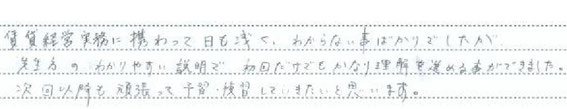 賃貸経営実務に携わって日も浅く、わからない事ばかりでしたが
先生方のわかりやすい説明で初回だけでもかなり理解を深める事ができました。
次回以降も頑張って予習・復習していきたいと思います。